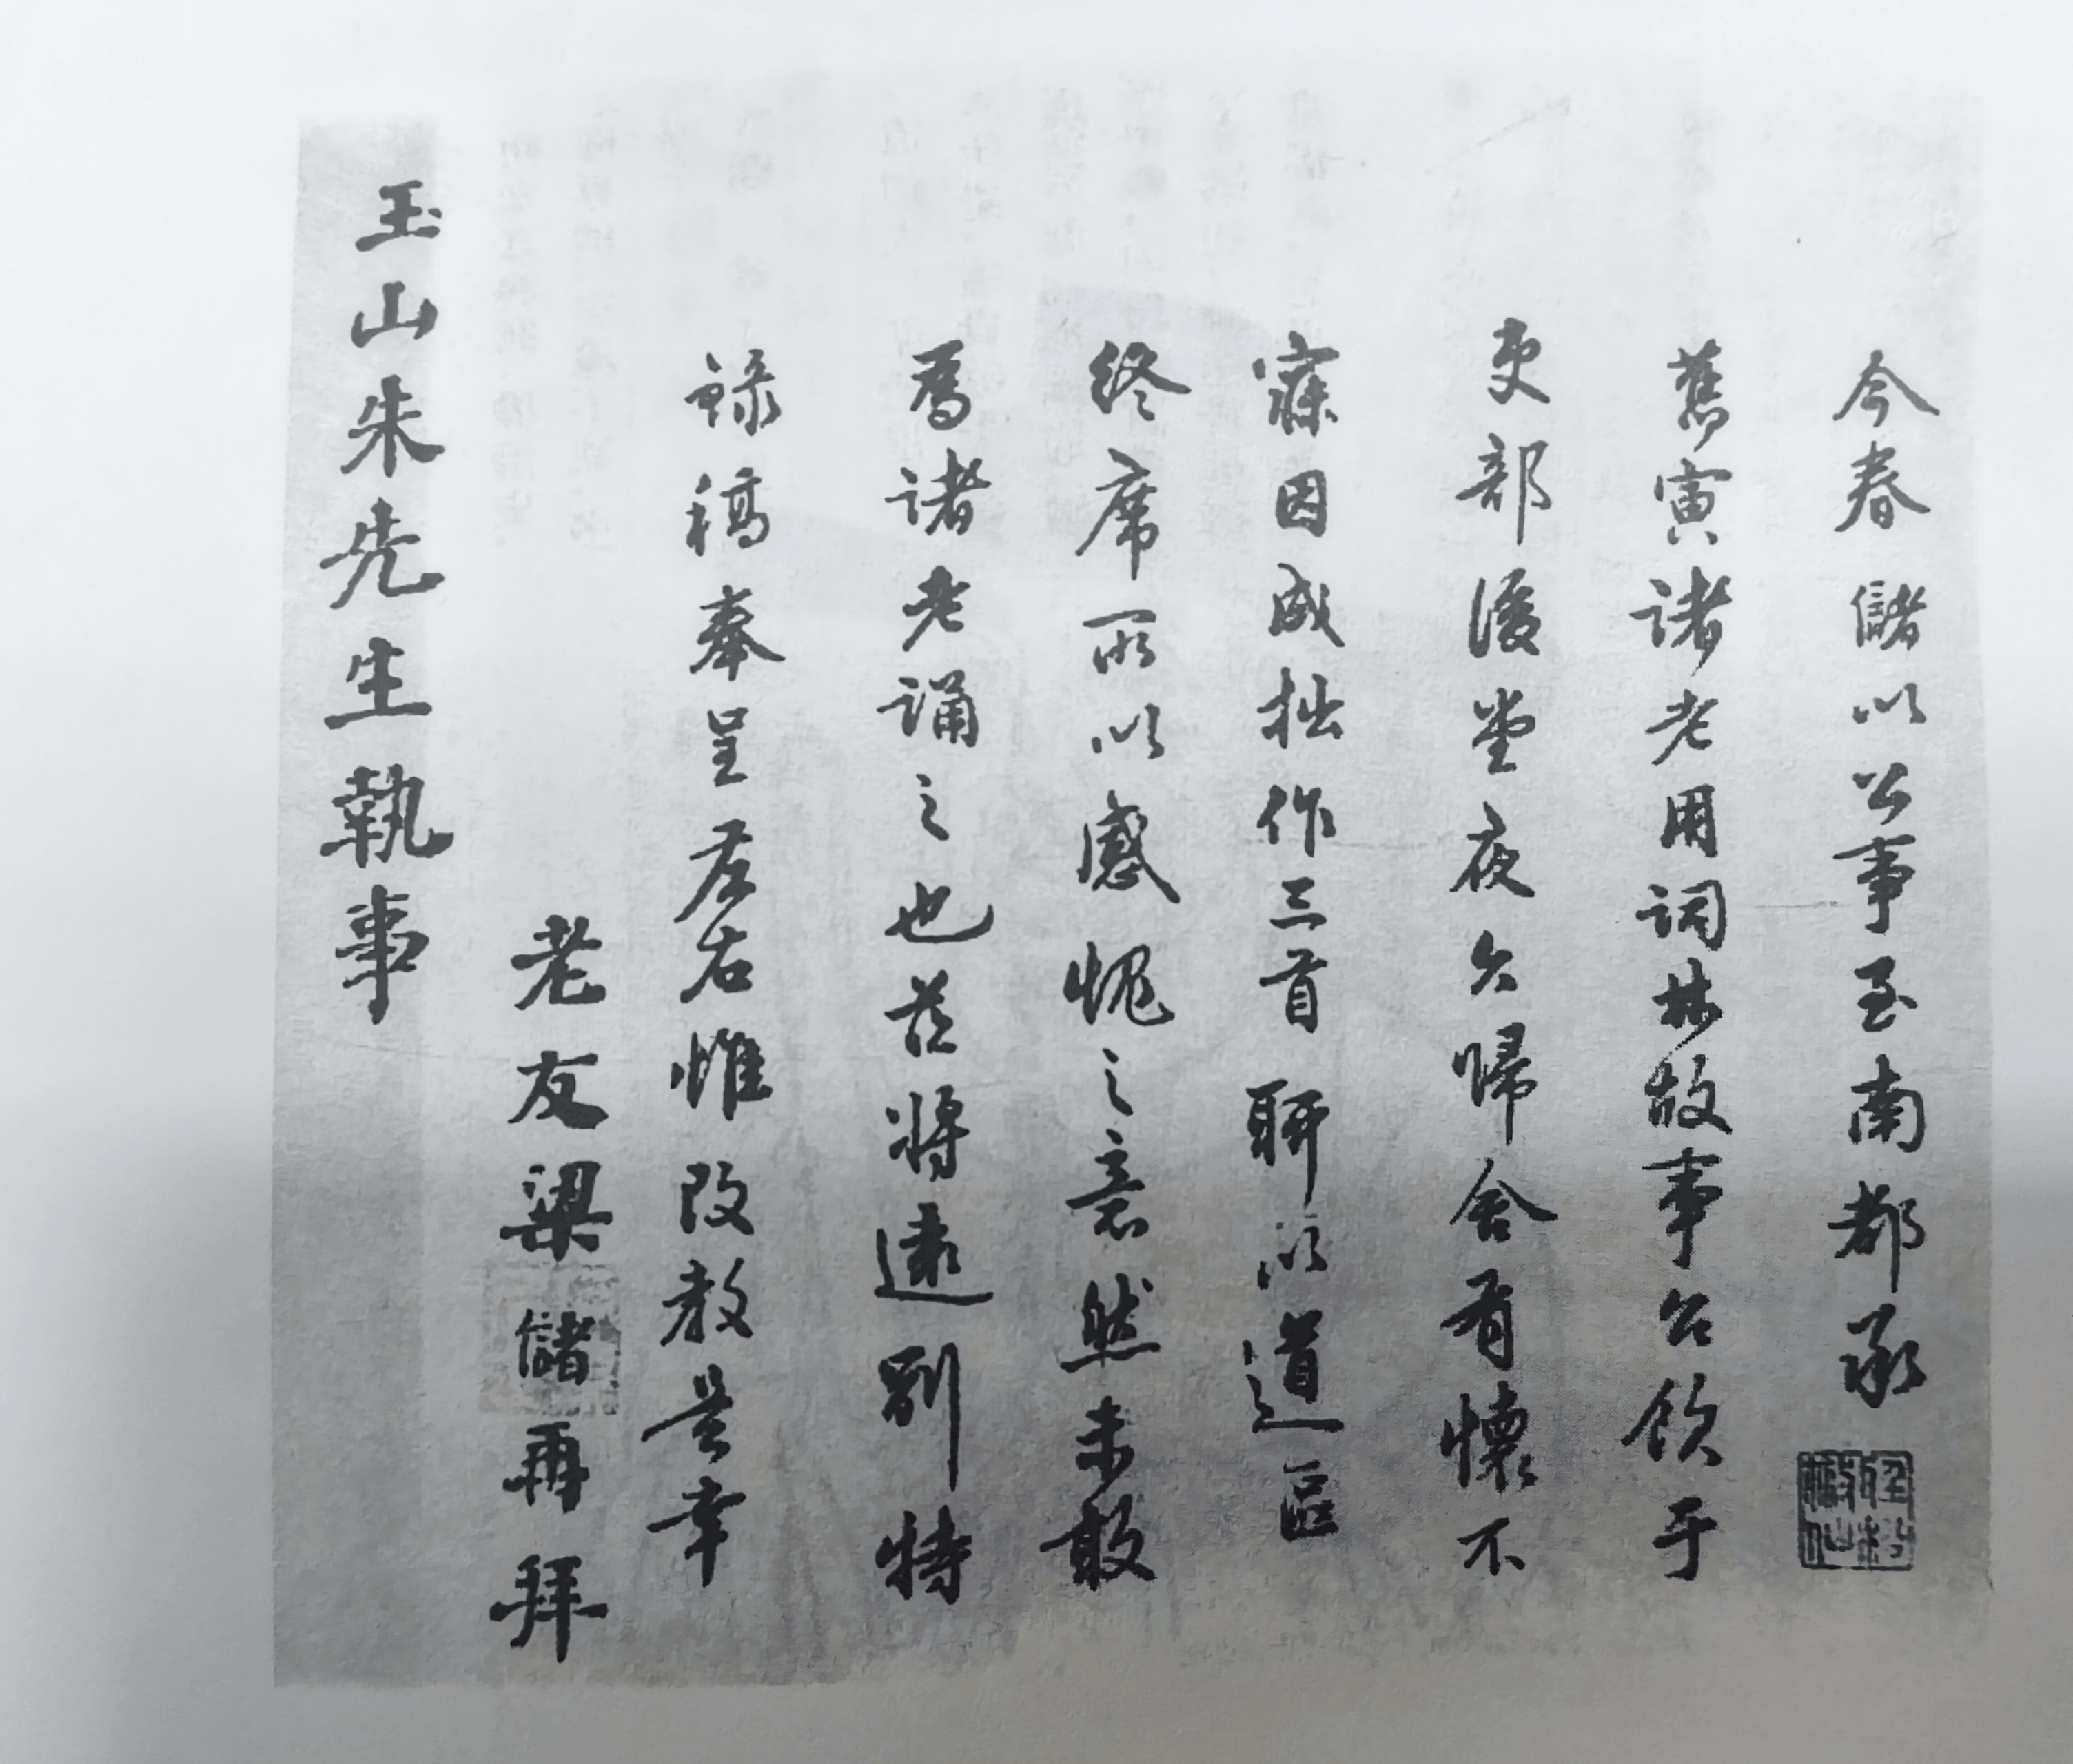 今春儲以公事至南都承
舊寅諸老用詞林故事公飲于
吏部後堂夜久歸舍有懷不
寐因成拙作三首聊以道區
終席所以感愧之意然未敢
爲諸老誦之也茲將遠別特
錄稿奉呈左右惟改教是幸
老友梁儲再拜
玉山朱先生執事